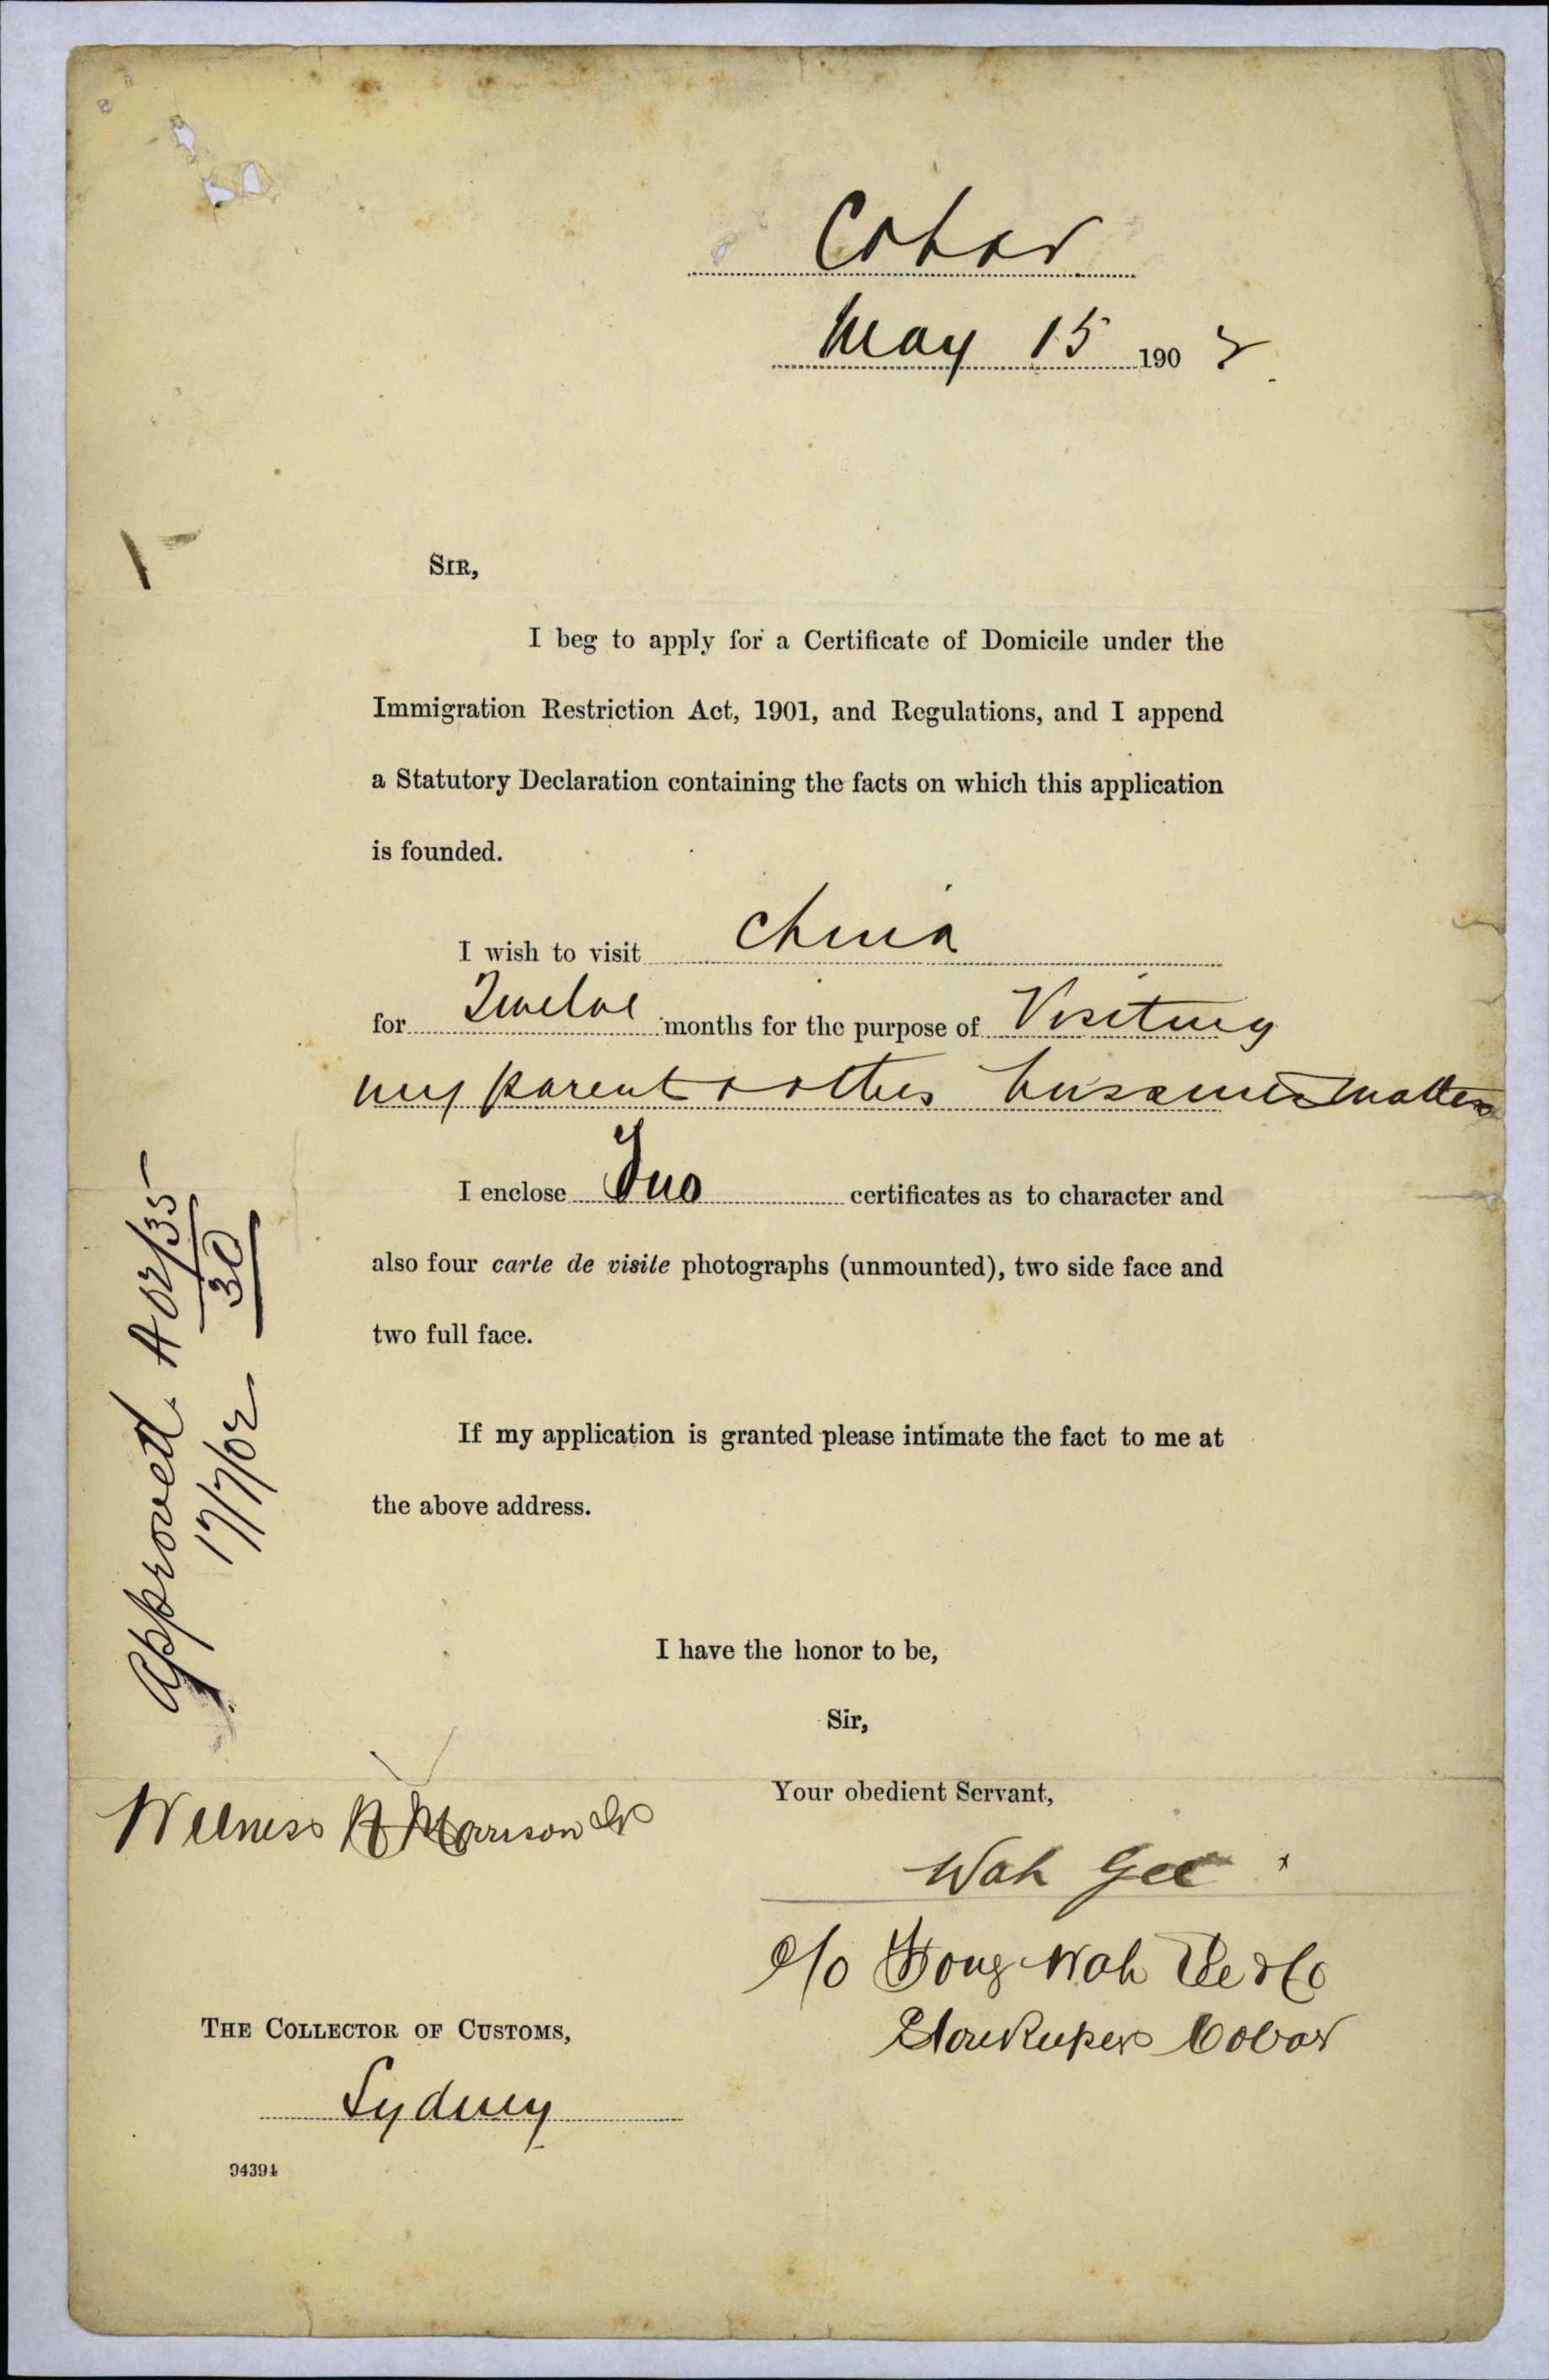 Cobar
May 15 1902
SIR,
I beg to apply for a Certificate of Domicile under the
Immigration Restriction Act, 1901, and Regulations, and I append
a Statutory Declaration containing the facts on which this application
is founded.
I wish to visit China
for Twelve months for the purpose of Visiting
my parent & other business matters
I enclose Two certificates as to character and
also four carte de visite photographs (unmounted), two side face and
two full face.
If my application is granted please intimate the fact to me at
the above address.
Approved. A02/35
17/7/02 30
I have the honor to be,
Sir,
Your obedient Servant,
Witness Morrison
Wah Gee x
c/o Wah & Co
Storekeepers Cobar
THE COLLECTOR OF CUSTOMS,
Sydney
94394